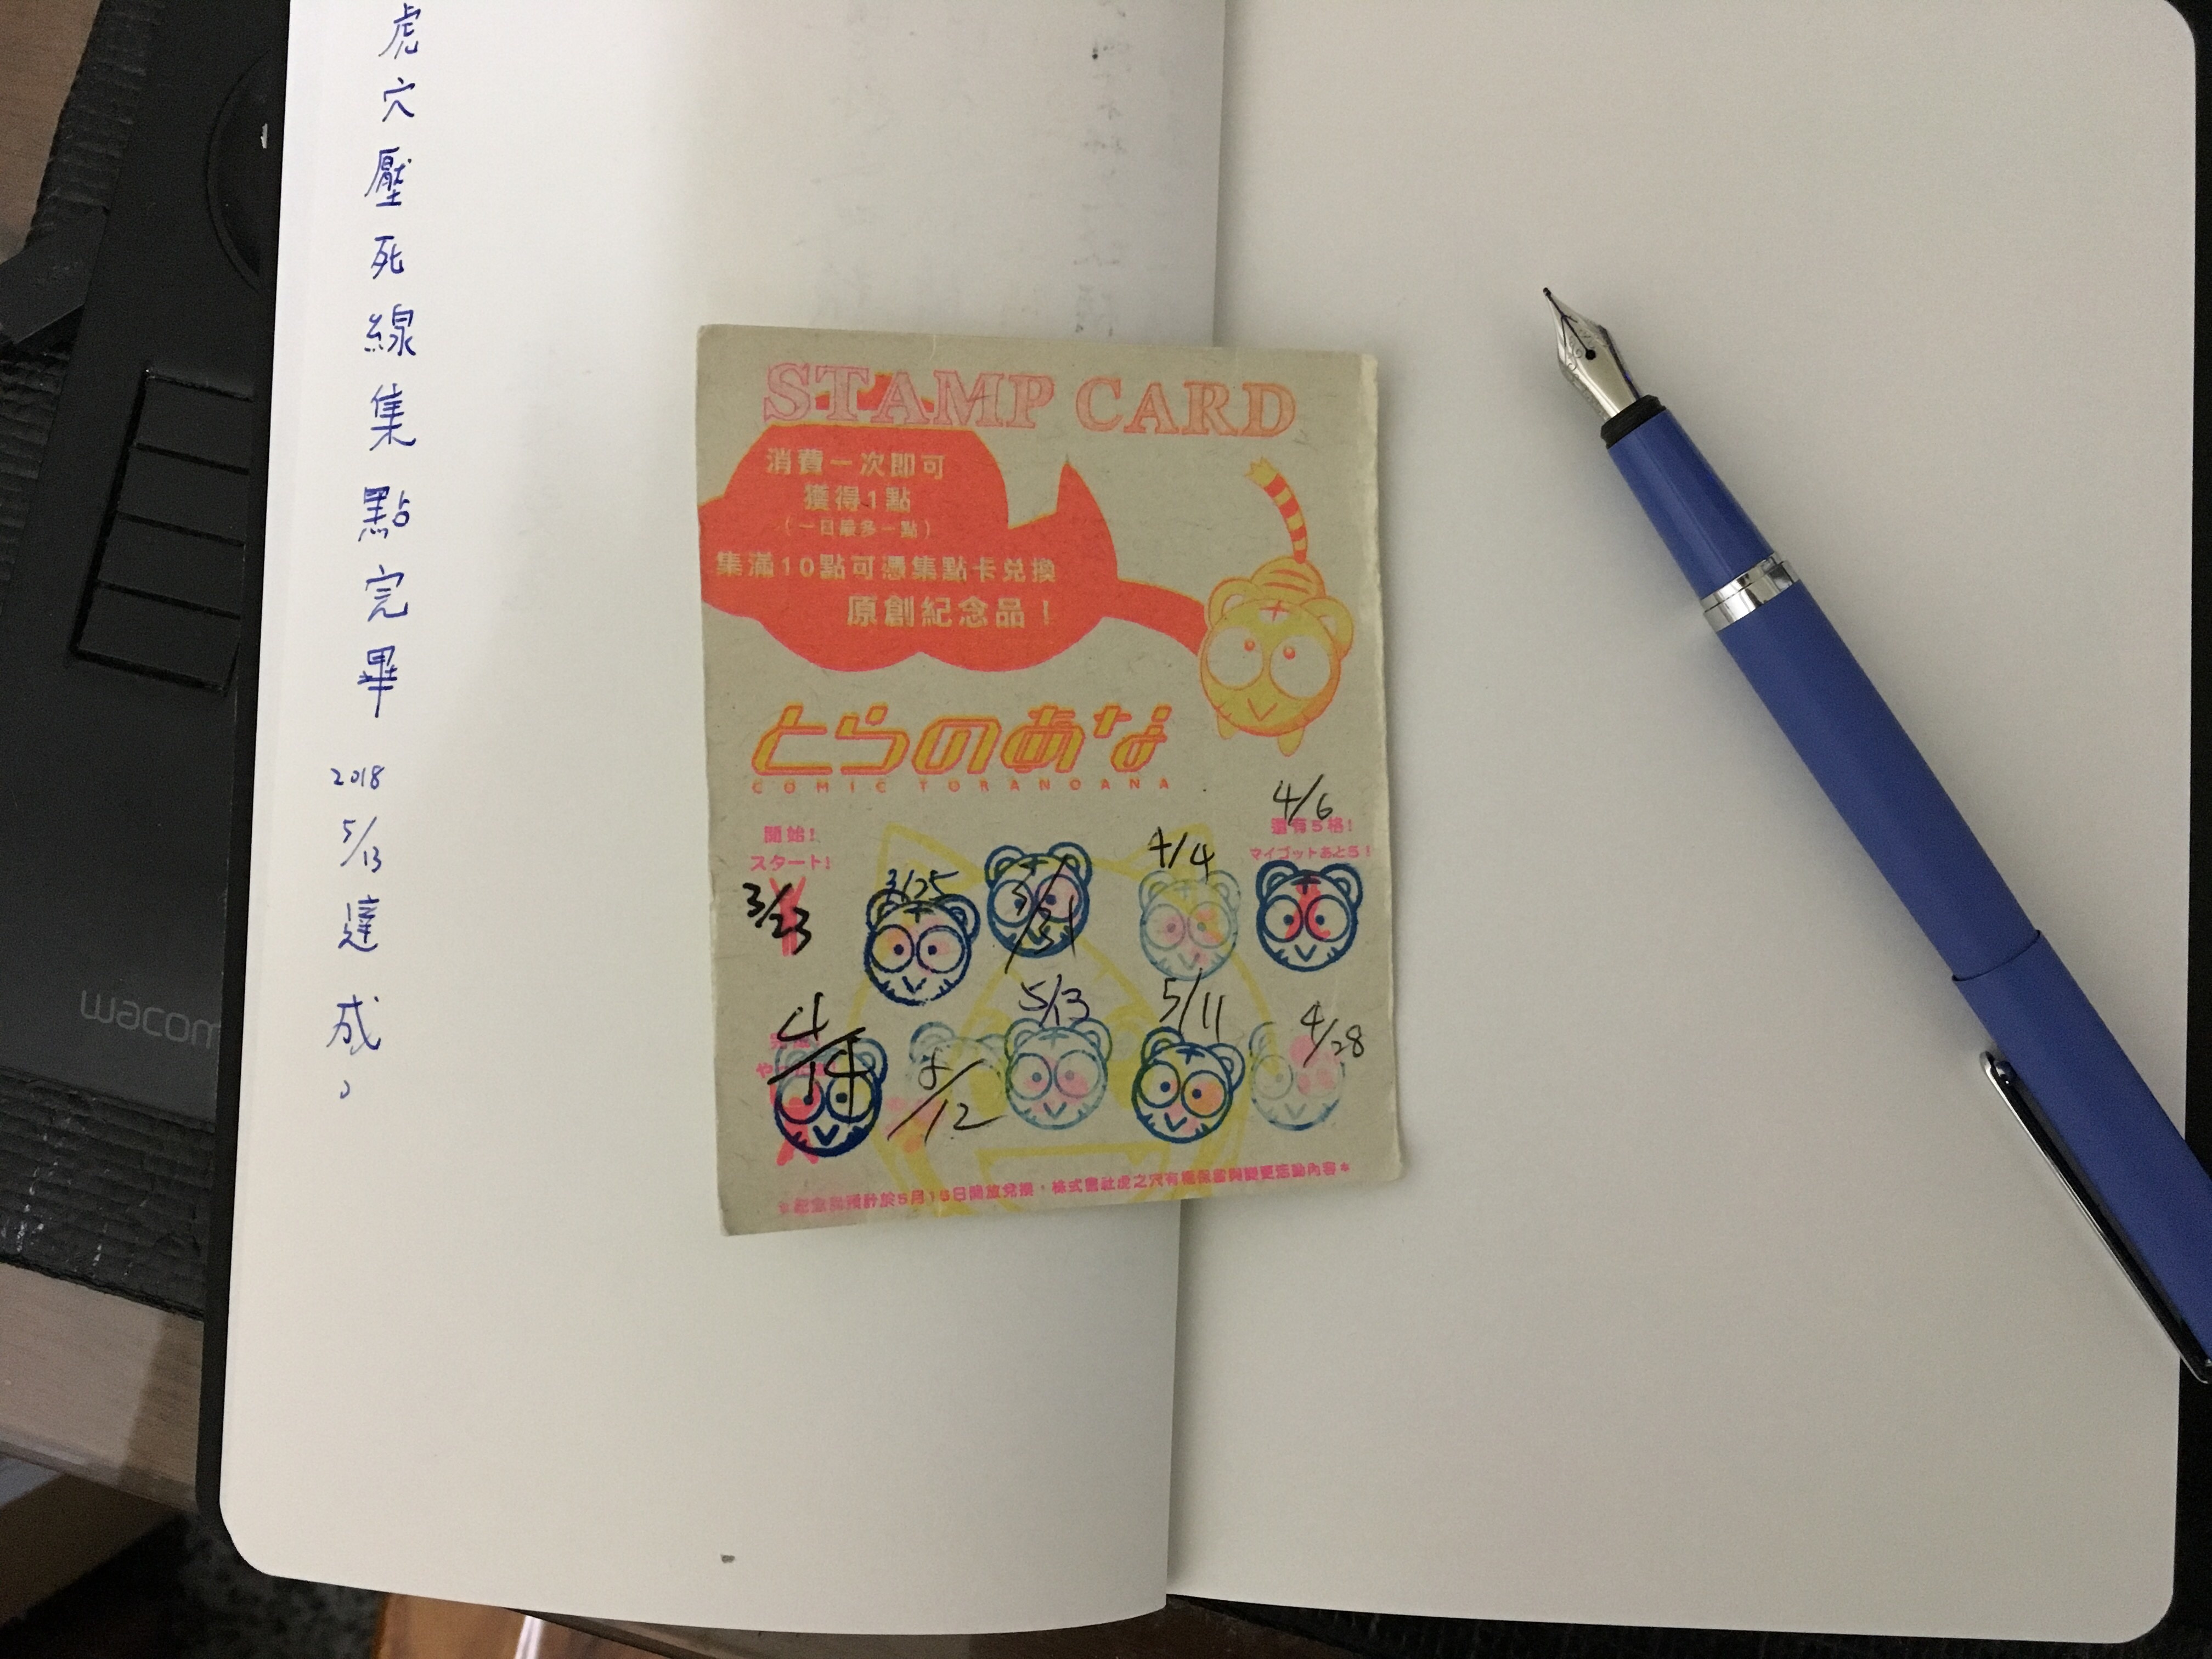 虎穴壓死線集點完畢
2018
5/13
達成。
STAMP CARD
消費一次即可
獲得1點
(一日最多一點)
集滿10點可憑集點卡兌換
原創紀念品！
とらのあな
COMIC TORANOANA
開始!
スタート!
3/23
3/25
3/31
4/4
4/6
還有5格!
マイゴットあと5!
4/14
5/12
5/13
5/11
4/28
※紀念品預計於5月15日開放兌換，株式會社虎之穴有權保留與變更活動內容＊
wacom